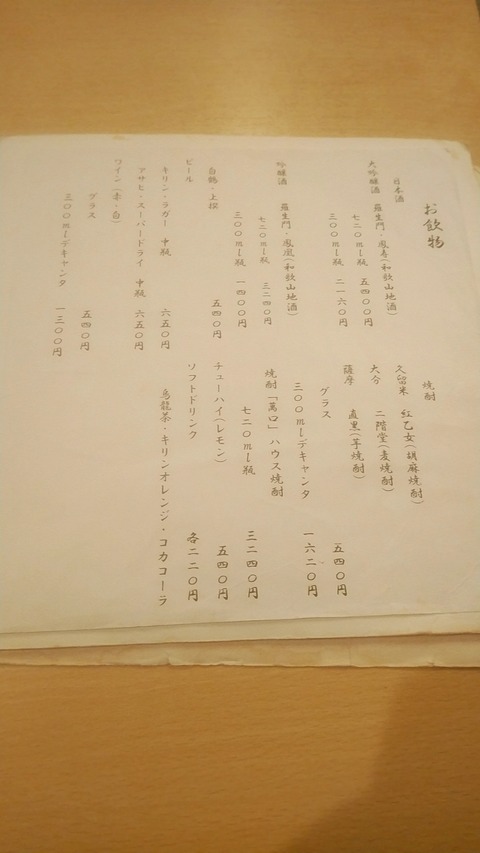 お飲物
日本酒
大吟醸酒 羅生門・鳳寿(和歌山地酒)
七二〇ml瓶 五四〇〇円
三〇〇ml瓶 二一六〇円
吟醸酒 羅生門・鳳凰(和歌山地酒)
七二〇ml瓶 三二四〇円
三〇〇ml瓶 一四〇〇円
白鶴・上撰 五四〇円
ビール
キリン・ラガー 中瓶 六五〇円
アサヒ・スーパードライ 中瓶 六五〇円
ワイン(赤・白)
グラス 五四〇円
三〇〇mlデキャンタ 一三〇〇円
焼酎
久留米 紅乙女(胡麻焼酎)
大分 二階堂(麦焼酎)
薩摩 直黒(芋焼酎)
グラス 五四〇円
三〇〇mlデキャンタ 一六二〇円
焼酎「萬口」ハウス焼酎
七二〇ml瓶 三二四〇円
チューハイ(レモン) 五四〇円
ソフトドリンク 各二二〇円
烏龍茶・キリンオレンジ・コカコーラ